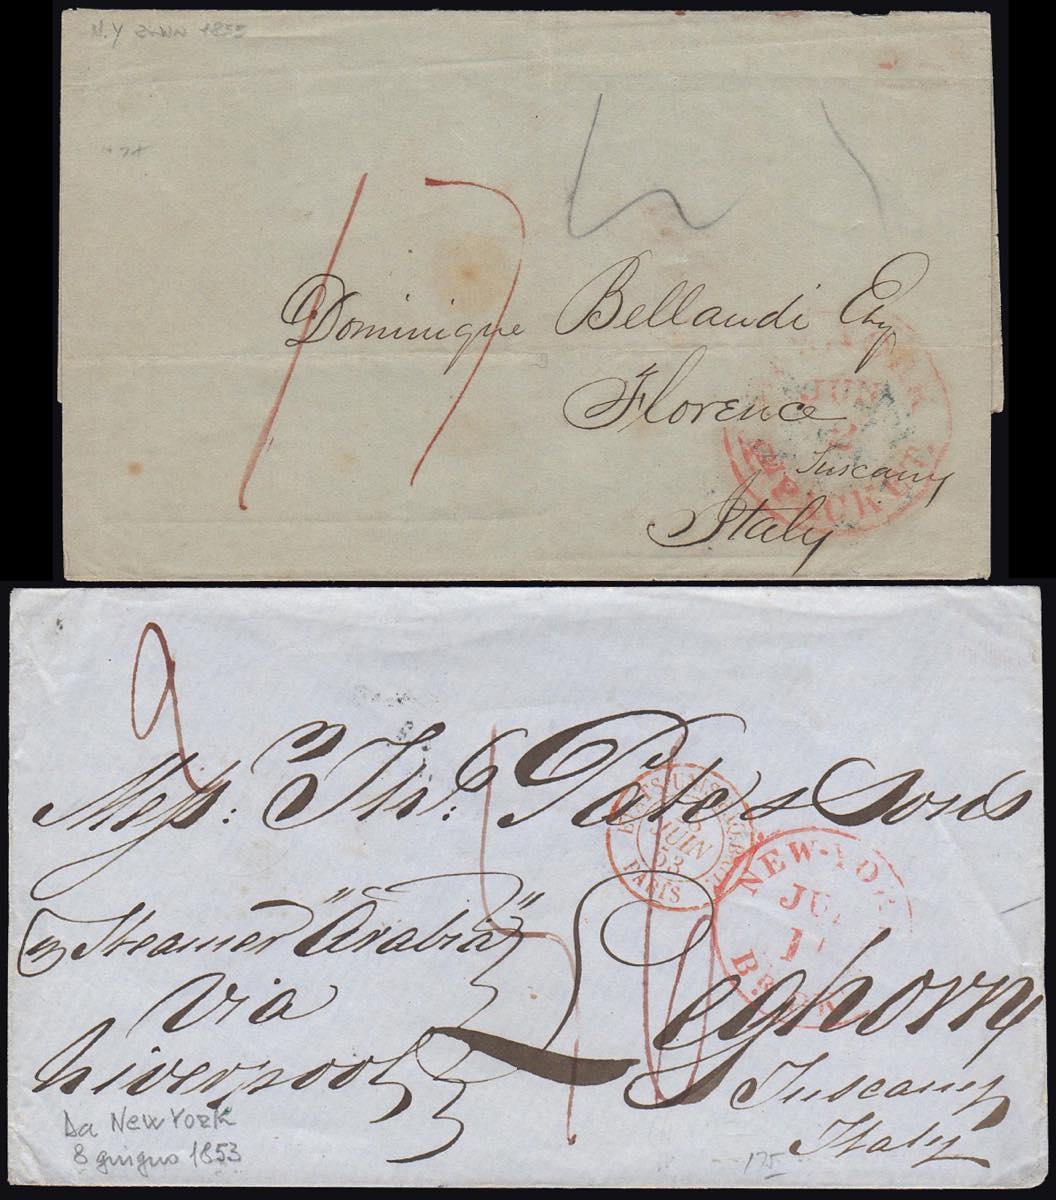 N.Y 1855
17
Dominique Bellandi Esq
Florence
Tuscany
Italy
JUN
2
PACKET
9
Mess: Th: Pate & Sons
p Steamer "Arabia"
via
Liverpool
Leghorn
Tuscany
Italy
JUIN
53
PARIS
NEW-YORK
Da New York
8 giugno 1853
175